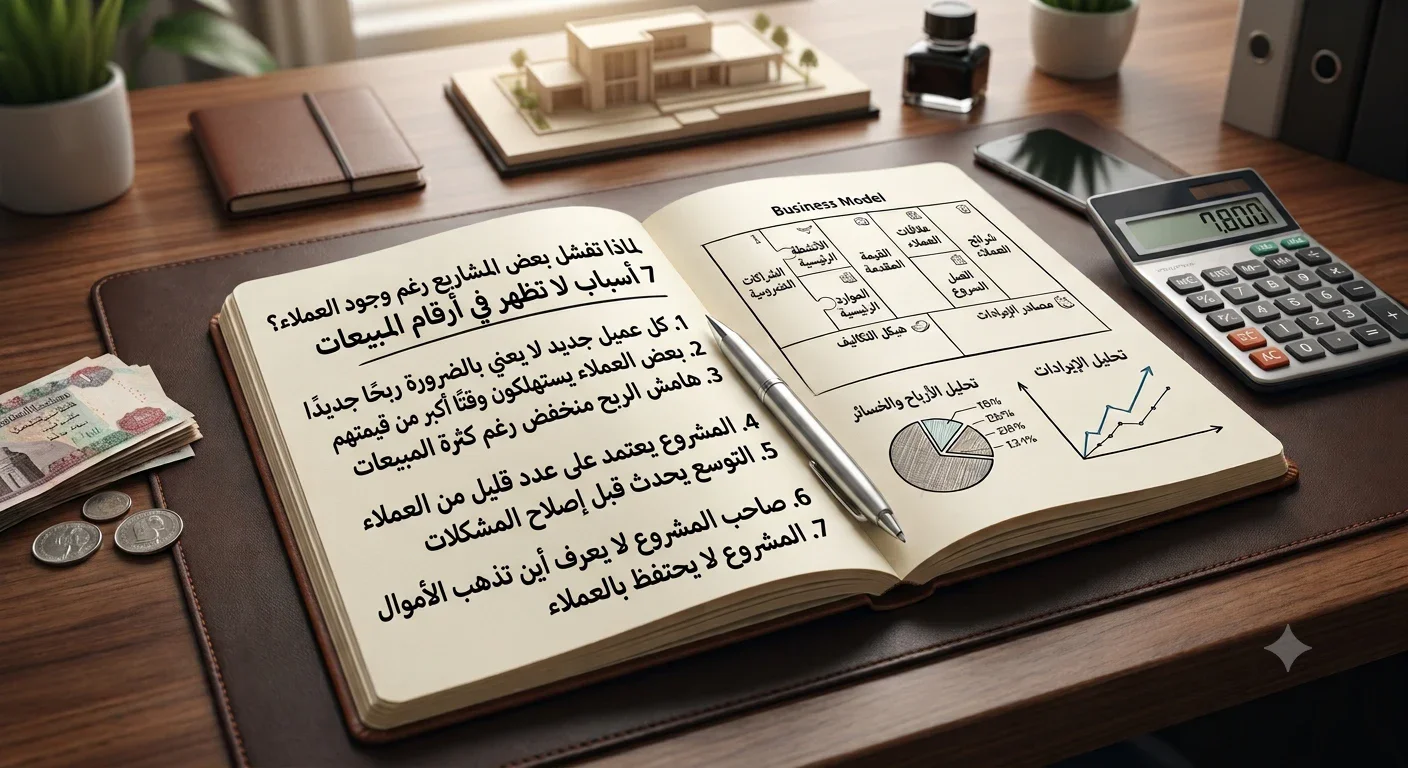 لماذا تفشل بعض المشاريع رغم وجود العملاء؟
7 أسباب لا تظهر في أرقام المبيعات
1. كل عميل جديد لا يعني بالضرورة ربحًا جديدًا
2. بعض العملاء يستهلكون وقتًا أكبر من قيمتهم
3. هامش الربح منخفض رغم كثرة المبيعات
4. المشروع يعتمد على عدد قليل من العملاء
5. التوسع يحدث قبل إصلاح المشكلات
6. صاحب المشروع لا يعرف أين تذهب الأموال
7. المشروع لا يحتفظ بالعملاء
Business Model
شرائح
العملاء
علاقات
العملاء
القيمة
المقدمة
الأنشطة
الرئيسية
الشراكات
الموارد
الرئيسية
مصادر الإيرادات
هيكل التكاليف
تحليل الإيرادات
تحليل الأرباح والخسائر
7,800
AC